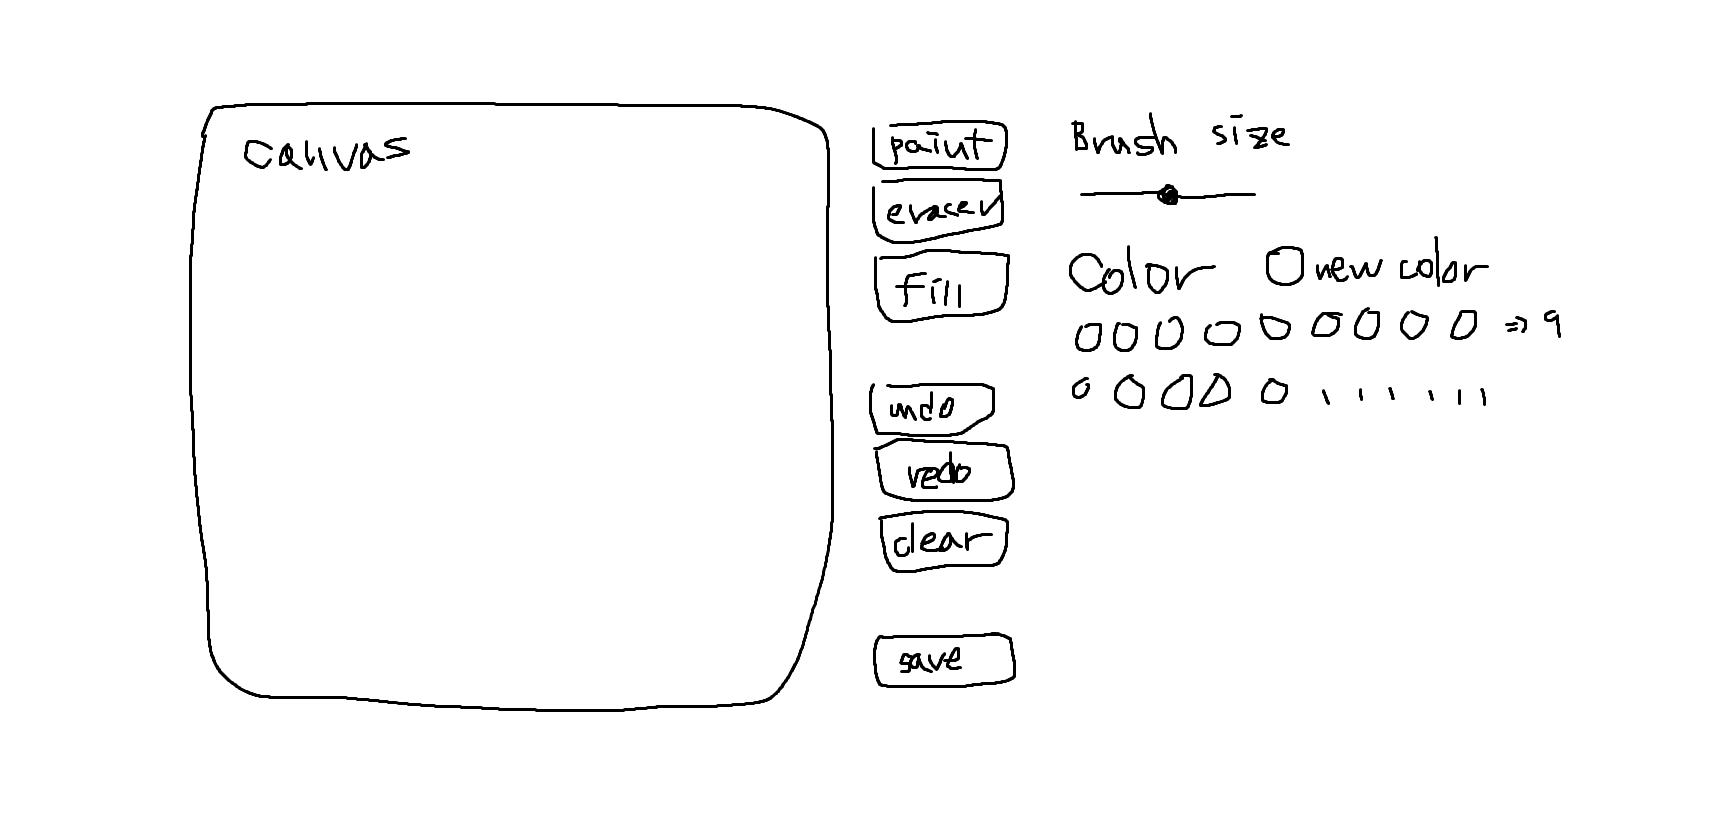 canvas
paint
eracer
fill
undo
redo
clear
save
Brush size
Color O new color
=> 9